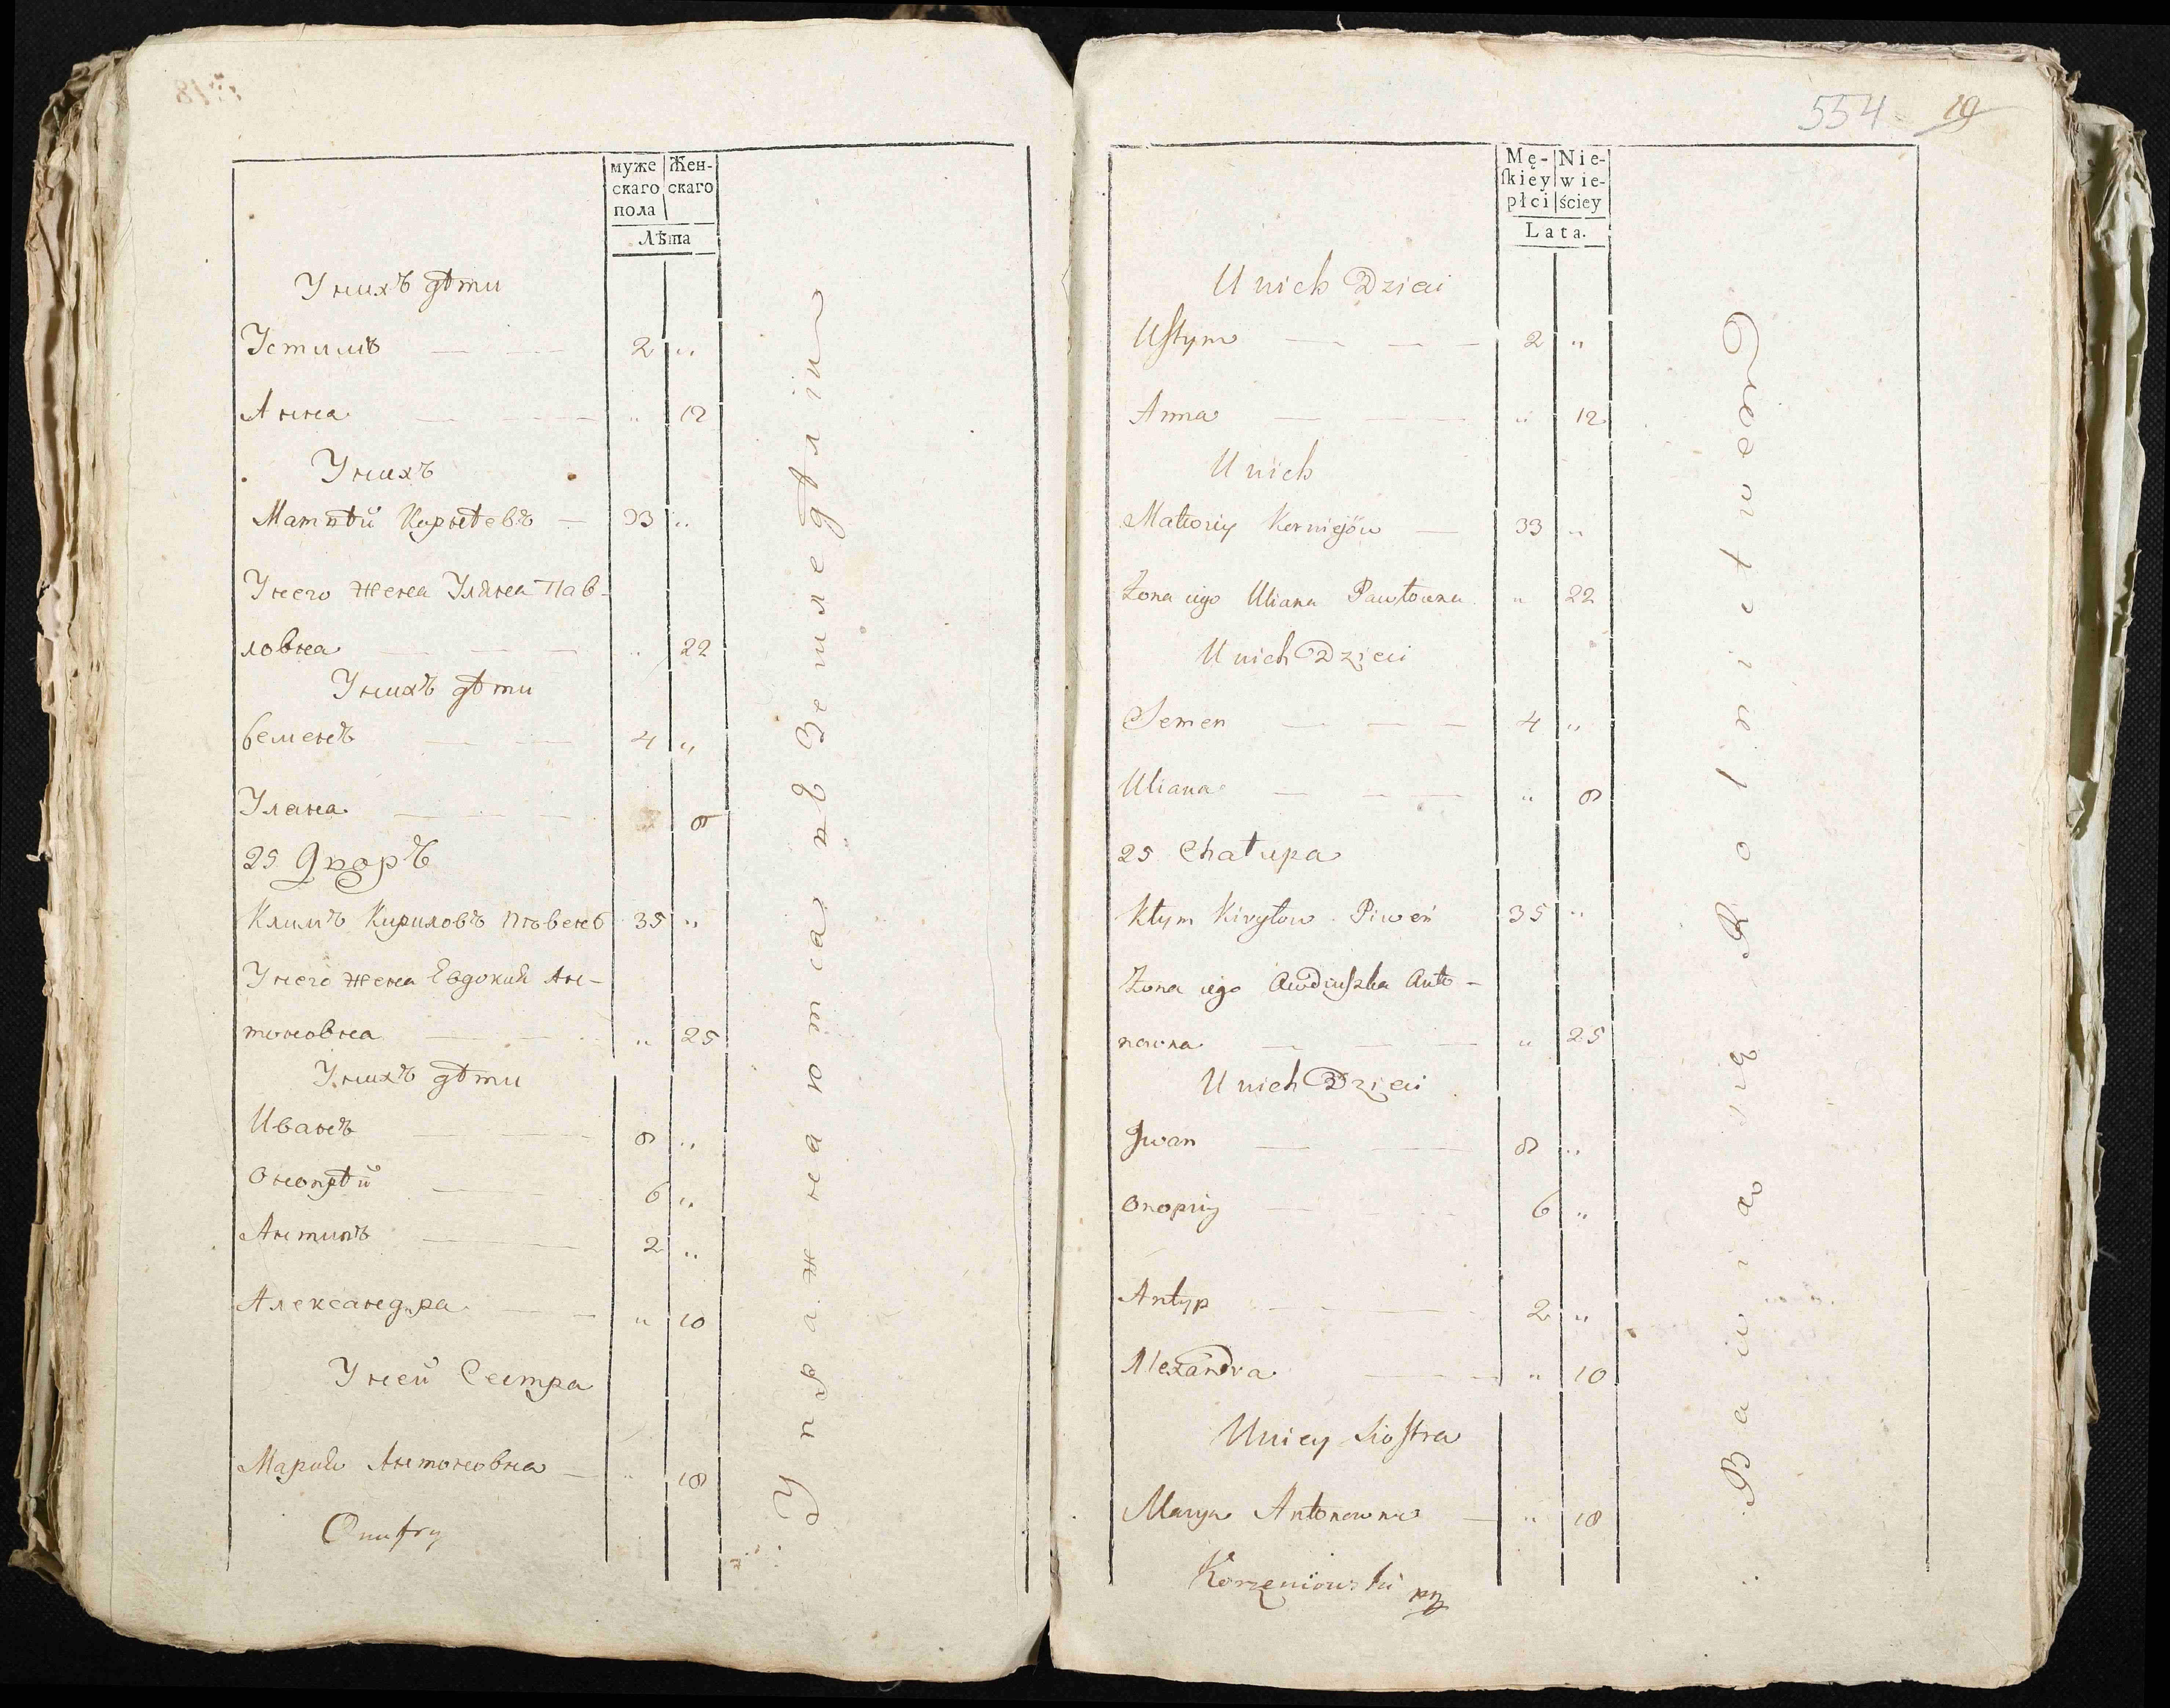 муже Жен-
скаго скаго
пола
Лѣта
У нихъ дѣти
Устимъ 2 "
Анна " 12
У нихъ
Матвѣй Корнѣевъ 33 "
У него жена Уляна Пав-
ловна " 22
У нихъ дѣти
Семенъ 4 "
Уляна 8
25 Дворъ
Климъ Кириловъ Пѣвень 35 "
У него жена Евдокия Ан-
тоновна " 25
У нихъ дѣти
Иванъ 8 "
Онопрѣй 6 "
Антипъ 2 "
Александра " 10
У ней Сестра
Мария Антоновна " 18
Onufry
Упражнаются въ Земледѣлiи
554 19
Mę- Nie-
skiey wie-
płci ściey
Lata.
U nich Dzieci
Ustym 2 "
Anna " 12
U nich
Matwiy Korniejów 33 "
Żona iego Uliana Pawłowna " 22
U nich Dzieci
Semen 4 "
Uliana " 8
25 Chałupa
Kłym Kiryłow Piweń 35 "
Żona iego Awdiuszka Anto-
nowna " 25
U nich Dzieci
Jwan 8 "
Onopriy 6 "
Antyp 2 "
Alexandra " 10
U niey Siostra
Marya Antonowna " 18
Korzeniowski
Bawią się Rolnictwem